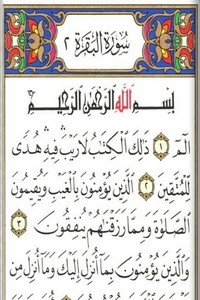 سُورَةُ الْبَقَرَةِ ٢
بِسْمِ اللَّهِ الرَّحْمَٰنِ الرَّحِيمِ
الٓمٓ ١ ذَٰلِكَ الْكِتَٰبُ لَا رَيْبَ فِيهِ هُدًى
لِّلْمُتَّقِينَ ٢ الَّذِينَ يُؤْمِنُونَ بِالْغَيْبِ وَيُقِيمُونَ
الصَّلَوٰةَ وَمِمَّا رَزَقْنَٰهُمْ يُنفِقُونَ ٣
وَالَّذِينَ يُؤْمِنُونَ بِمَا أُنزِلَ إِلَيْكَ وَمَا أُنزِلَ مِن